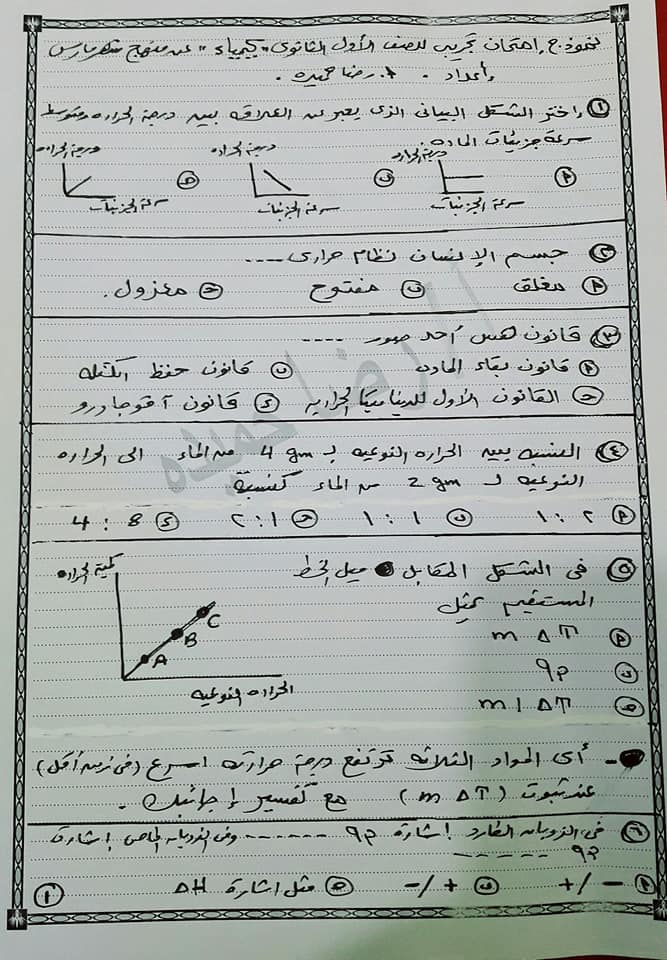 نموذج إمتحان تجريبى للصف الأول الثانوى "كيمياء" عن منهج شهر مارس
إعداد . أ. رضا حميده .
١ إختر الشكل البيانى الذى يعبر عن العلاقه بين درجة الحراره ومتوسط
سرعة جزيئات الماده
درجة الحراره درجة الحراره درجة الحراره
أ ب ج
سرعة الجزيئات سرعة الجزيئات سرعة الجزيئات
٢ جسم الإنسان نظام حرارى ----
أ مغلق ب مفتوح ج معزول .
٣ قانون هس أحد صور ----
أ قانون بقاء الماده ب قانون حفظ الكتله
ج القانون الأول للديناميكا الحراريه د قانون أفوجادرو
٤ النسبه بين الحراره النوعيه لـ 4 gm من الماء الى الحراره
النوعيه لـ 2 gm من الماء كنسبة
أ ١ : ٢ ب ١ : ١ ج ٢ : ١ د 4 : 8
٥ فى الشكل المقابل ميل الخط
المستقيم يمثل
كمية الحراره
A B C
الحراره النوعيه
أ m ΔT
ب qp
ج m / ΔT
- أى المواد الثلاثه ترتفع درجة حرارته اسرع (فى زمن أقل)
عند ثبوت (m ΔT) مع تفسير إجابتك .
٦ فى الذوبان الطارد إشارة qp ------ وفى الذوبان الماص إشارة
qp ------
أ - / + ب + / - ج مثل اشارة ΔH
١
أ/ رضا حميده